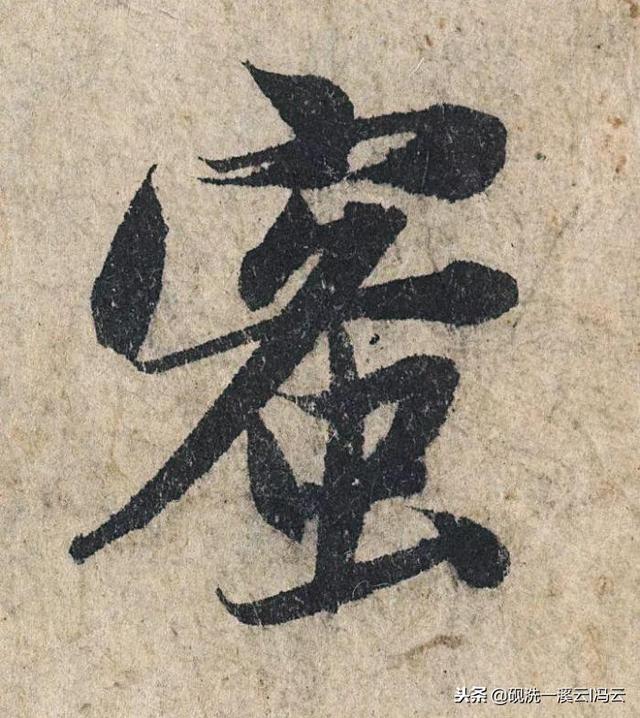 蜜
头条 @砚洗一溪云|冯云